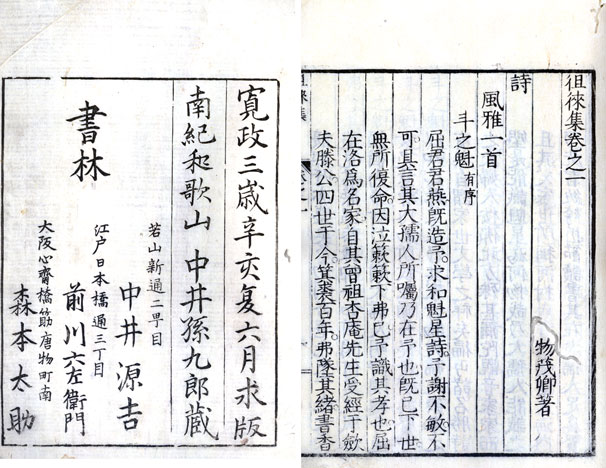 徂徠集卷之一
物茂卿著
詩
風雅一首
斗之魁有序
屈君君燕旣造予。求和魁星詩。予謝不敏。不
可。具言其大孺人所囑乃在予也。旣已下世
無所復命。因泣簌簌下弗已。予識其孝也。屈
在洛爲名家。自其曾祖杏庵先生受經于歛
夫滕公。四世于今。箕裘百年。弗墜其緒。書香
徂徠集
寛政三歳辛亥夏六月求版
南紀和歌山 中井孫九郎藏
若山新通二丁目
中井源吉
江戸日本橋通三丁目
前川六左衛門
大阪心齋橋筋唐物町南
森本太助
書林